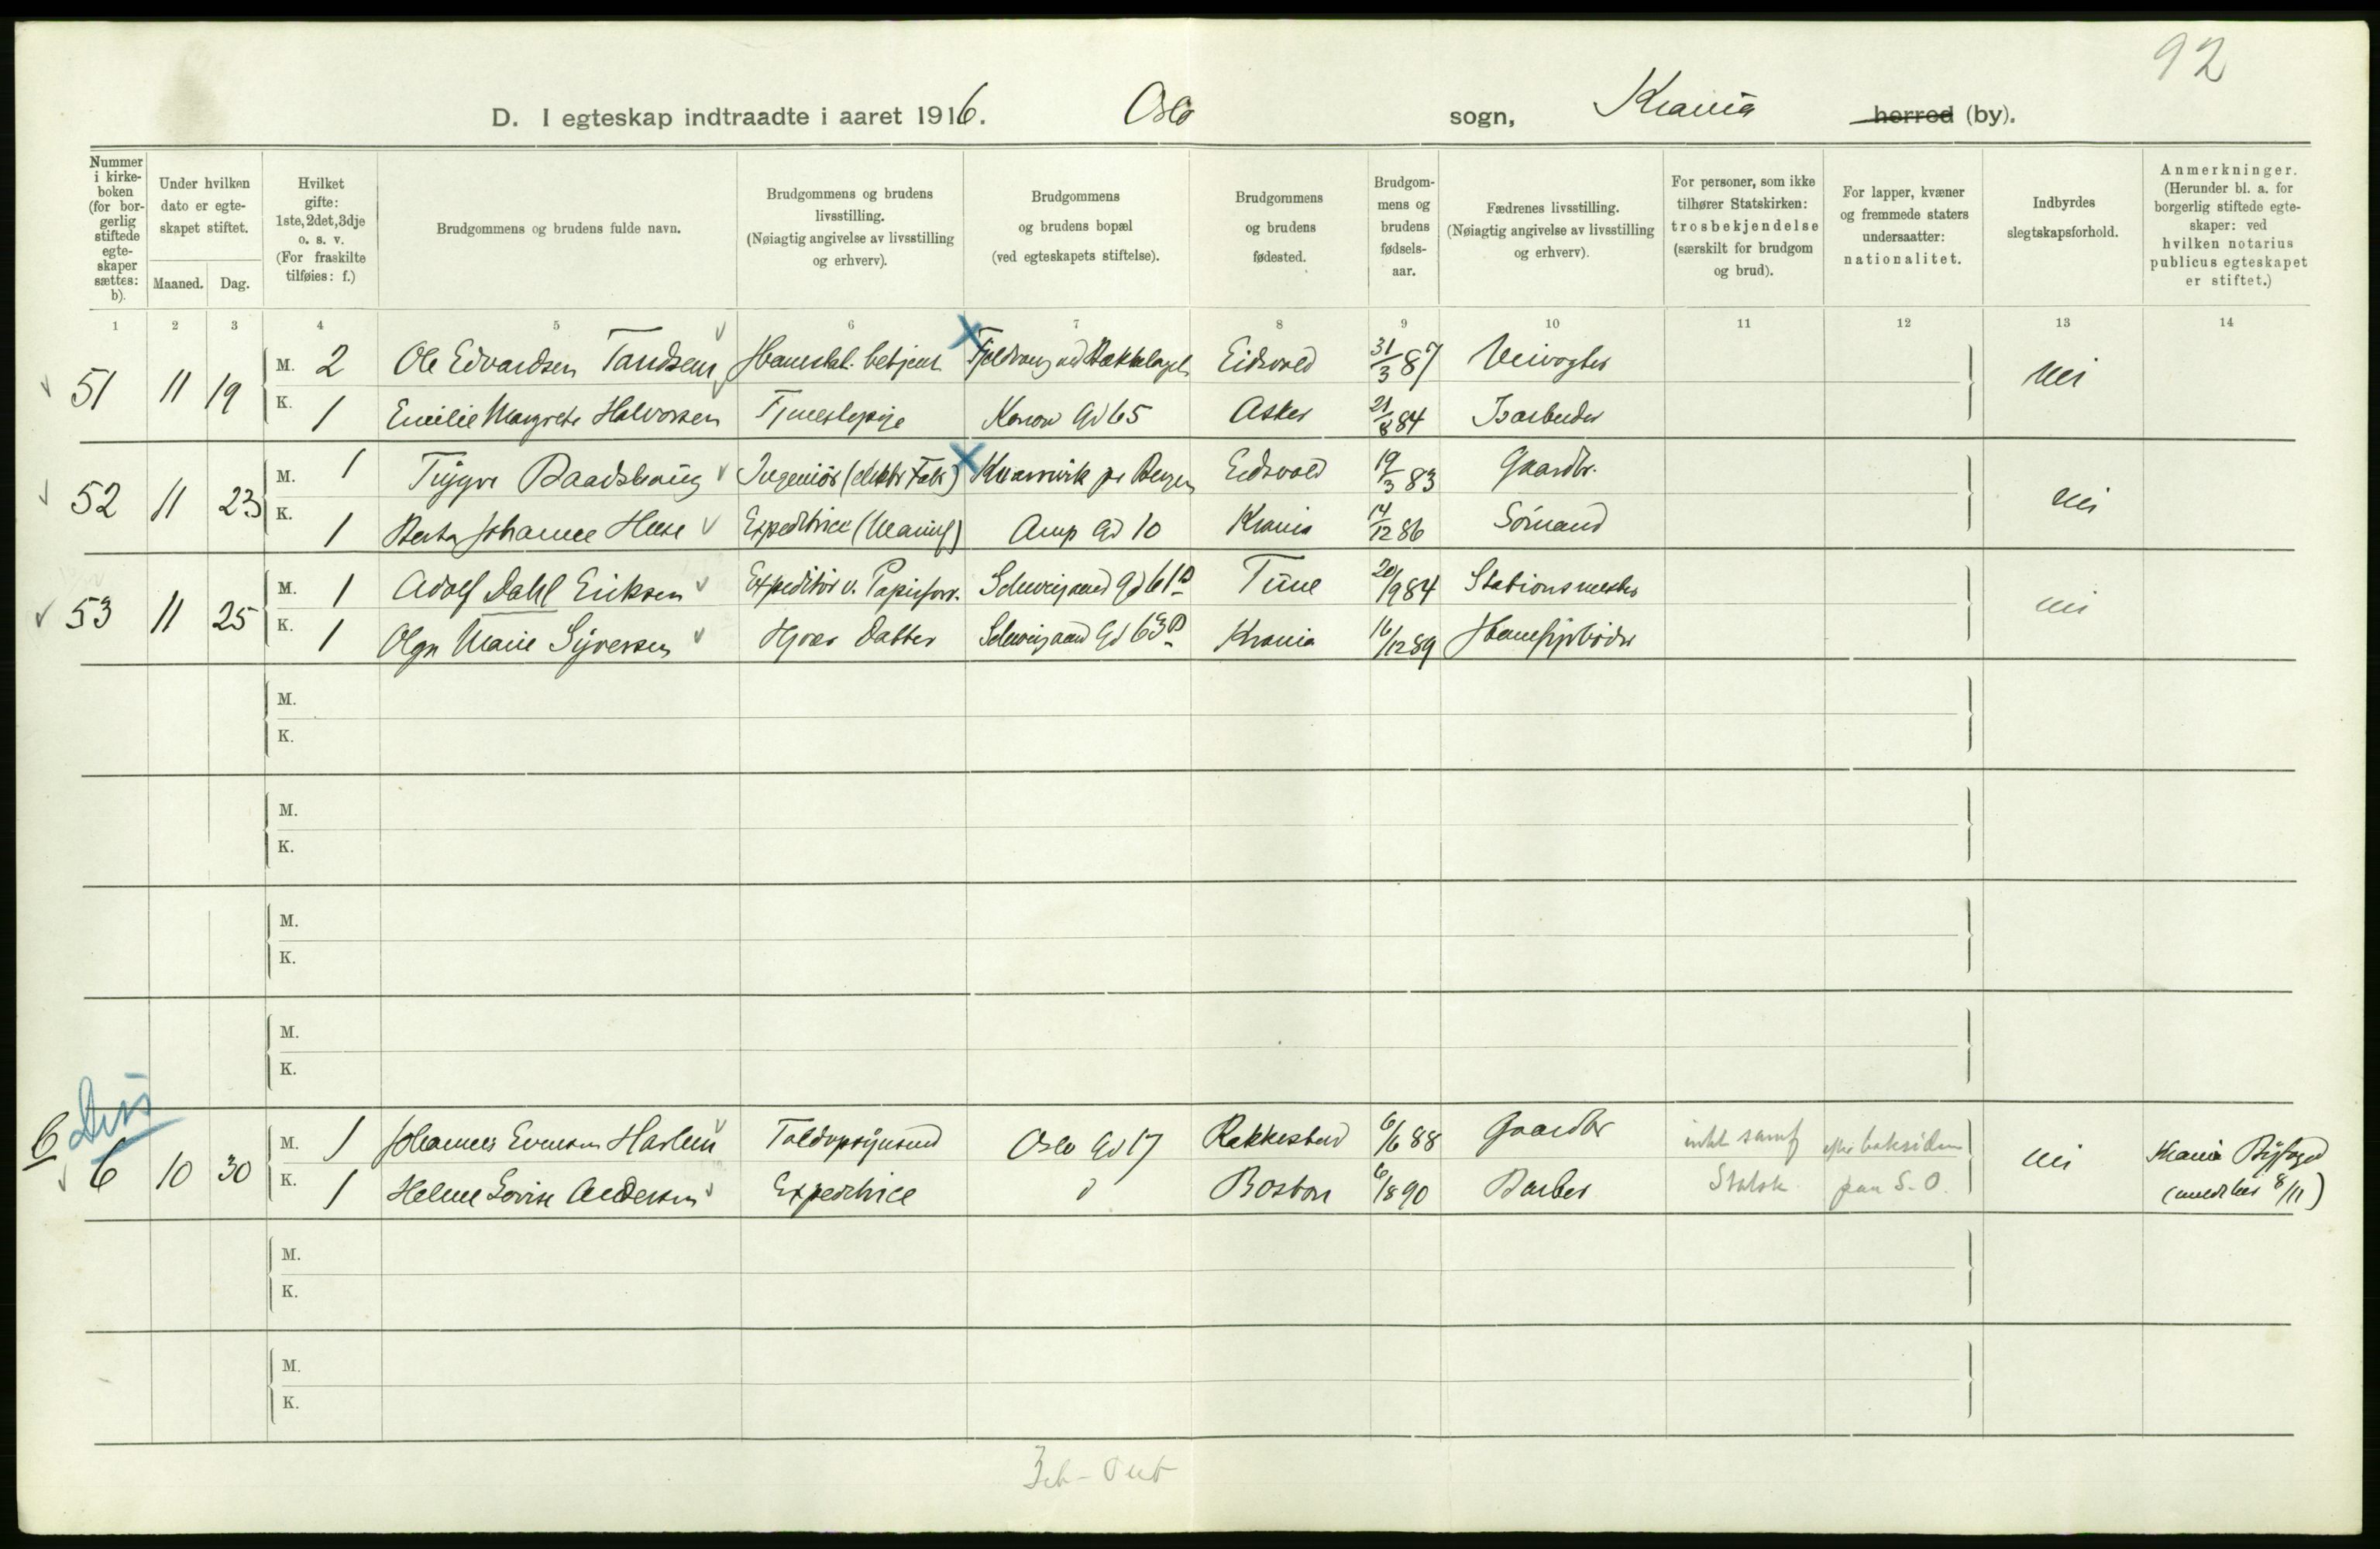 92
D. I egteskap indtraadte i aaret 1916. Oslo sogn, Krania herred (by).
Nummer i kirke-boken (for bor-gerlig stiftede egte-skaper sættes: b).
Under hvilken dato er egte-skapet stiftet.
Maaned. Dag.
Hvilket gifte: 1ste, 2det, 3dje o. s. v. (For fraskilte tilføies: f.)
Brudgommens og brudens fulde navn.
Brudgommens og brudens livsstilling. (Nøiagtig angivelse av livsstilling og erhverv).
Brudgommens og brudens bopæl (ved egteskapets stiftelse).
Brudgommens og brudens fødested.
Brudgom-mens og brudens fødsels-aar.
Fædrenes livsstilling. (Nøiagtig angivelse av livsstilling og erhverv).
For personer, som ikke tilhører Statskirken: trosbekjendelse (særskilt for brudgom og brud).
For lapper, kvæner og fremmede staters undersaatter: nationalitet.
Indbyrdes slegtskapsforhold.
Anmerkninger. (Herunder bl. a. for borgerlig stiftede egte-skaper: ved hvilken notarius publicus egteskapet er stiftet.)
1 2 3 4 5 6 7 8 9 10 11 12 13 14
51 11 19 M. 2 Ole Edvardsen Eidsvold 31/3 87 Veivogter nei
K. 1 Emilie Margrete Halvorsen Tjenestepige Kanow Gd 65 Asker 21/8 84 Isarbeider
52 11 23 M. 1 Trygve Raadshaug Ingeniør (elektr Fabr) Kvarnvik pr Bergen Eidsvold 19/3 83 Gaardbr. nei
K. 1 Berta Johanne Expeditrice (Manuf) Amp Gd 10 Krania 14/12 86 Sömand
53 11 25 M. 1 Adolf Dahl Eriksen Expeditör v. Papirforr. Schweigaard Gd 61 B Tune 20/9 84 Stationsmester nei
K. 1 Olga Marie Syversen Hjvær Datter Schweigaard Gd 63 B Krania 16/12 89
M.
K.
M.
K.
M.
K.
M.
K.
Diss
b
6 10 30 M. 1 Johannes Evensen Toldopsynsmd Oslo Gd 17 Rakkestad 6/6 88 Gaardbr intet samf efter baksiden nei Krania Byfoged
K. 1 Helene Lovise Andersen Expeditrice d Boston 6/8 90 Barber Statsk. paa S. O. (meldt her 8/11)
M.
K.
M.
K.